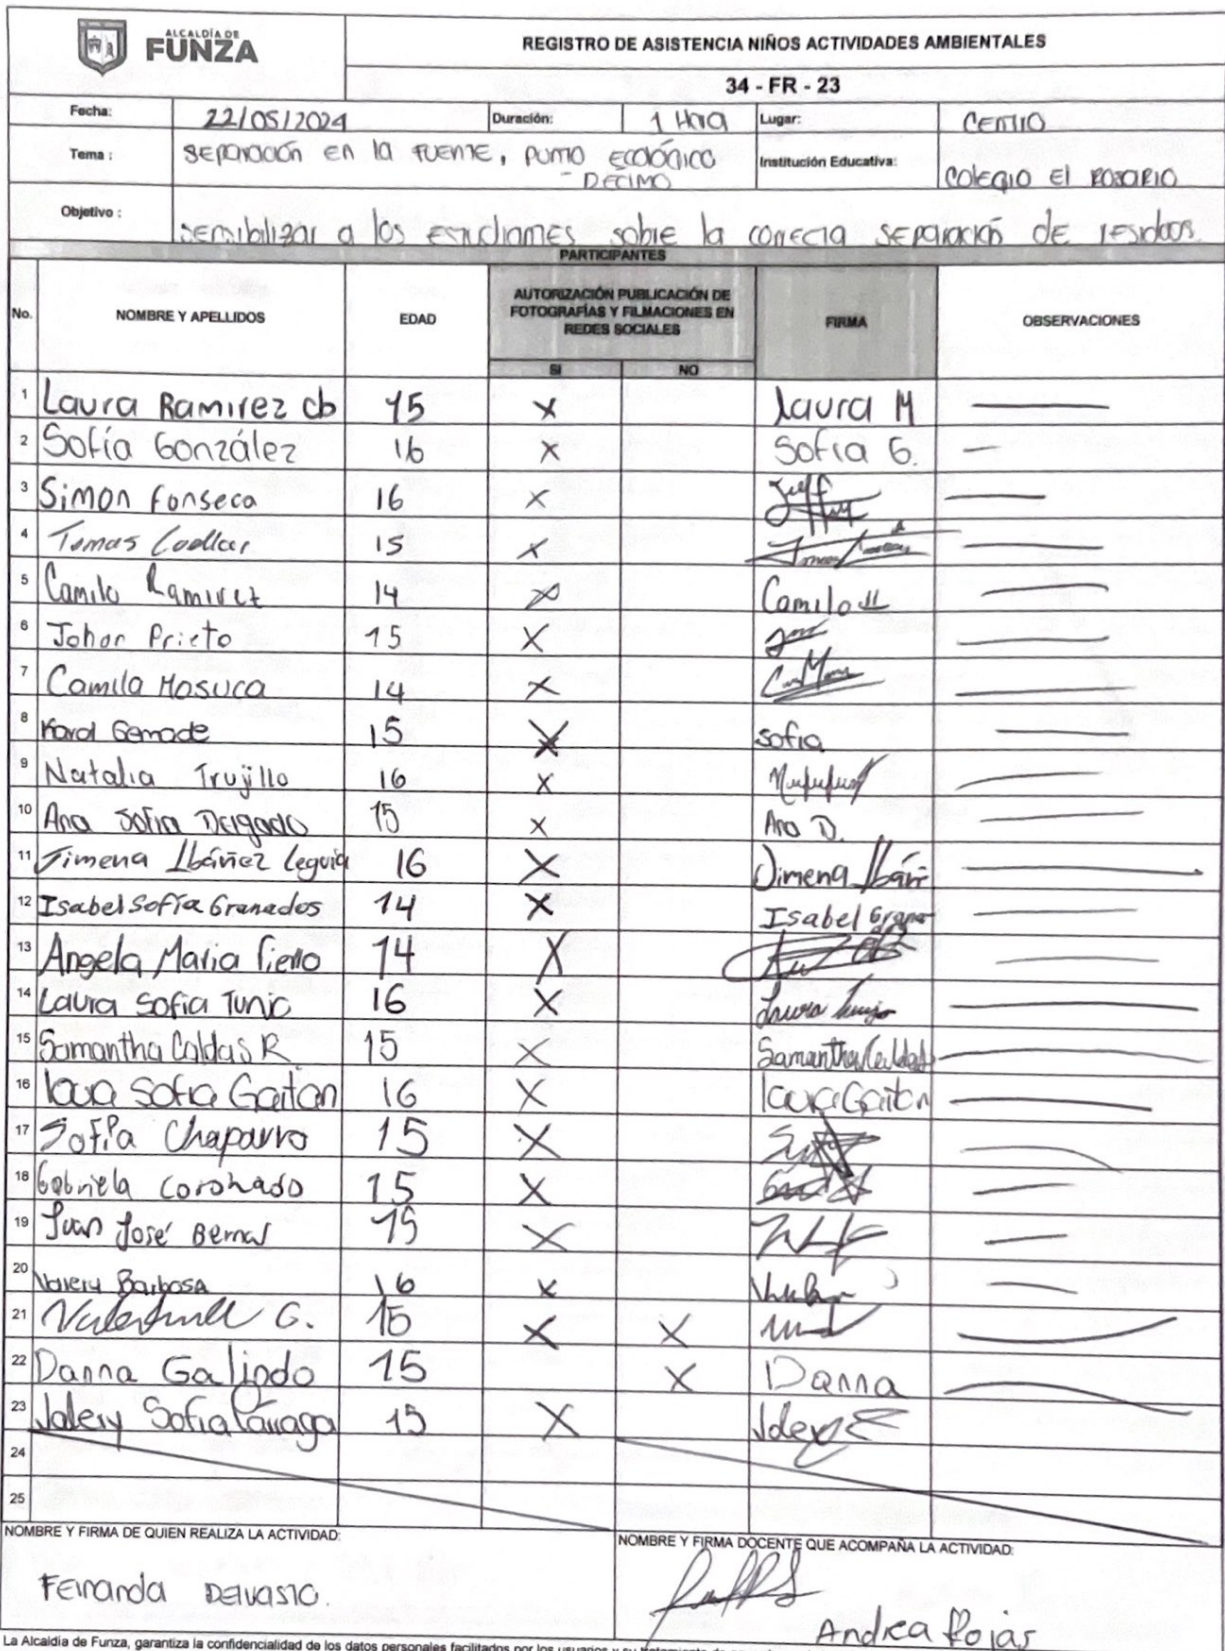 ALCALDÍA DE
FUNZA
REGISTRO DE ASISTENCIA NIÑOS ACTIVIDADES AMBIENTALES
34 - FR - 23
Fecha: 22/05/2024 Duración: 1 Hora Lugar: CENTRO
Tema : SEPARACIÓN EN LA FUENTE, PUNTO ECOLÓGICO Institución Educativa:
- DÉCIMO COLEGIO El ROSARIO
Objetivo : SENSIBILIZAR a los estudiantes sobre la correcta SEPARACIÓN de residuos.
PARTICIPANTES
No. NOMBRE Y APELLIDOS EDAD AUTORIZACIÓN PUBLICACIÓN DE FOTOGRAFÍAS Y FILMACIONES EN REDES SOCIALES FIRMA OBSERVACIONES
SI NO
1 Laura Ramirez cb 15 X Laura M
2 Sofía González 16 X Sofia G.
3 Simon Fonseca 16 X
4 Tomas Coellar 15 X
5 Camilo Ramirez 14 X Camilo
6 Johan Prieto 15 X
7 Camila Mosuca 14 X
8 Karol Gemade 15 X sofia
9 Natalia Trujillo 16 X
10 Ana Sofia Delgado 15 X Ana D.
11 Jimena Ibáñez Leguia 16 X Jimena Ibáñ
12 Isabel Sofía Granados 14 X Isabel Grana
13 Angela Maria Fierro 14 X
14 Laura Sofia Tunjo 16 X Laura Tunjo
15 Samantha Caldas R 15 X Samantha Caldas
16 laura Sofia Gaitan 16 X laura Gaitan
17 Sofia Chaparro 15 X
18 Gabriela Coronado 15 X
19 Juan José Bernal 15 X
20 Valery Barbosa 16 X
21 G. 15 X X
22 Danna Galindo 15 X Danna
23 Valery Sofia Párraga 15 X Valery
24
25
NOMBRE Y FIRMA DE QUIEN REALIZA LA ACTIVIDAD: NOMBRE Y FIRMA DOCENTE QUE ACOMPAÑA LA ACTIVIDAD:
Fernanda Delvasto.
Andrea Rojas
La Alcaldía de Funza, garantiza la confidencialidad de los datos personales facilitados por los usuarios y su tratamiento de